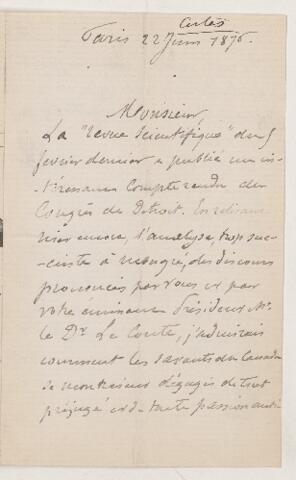 Certes
Paris 22 Juin 1876.
Monsieur,
La "Revue Scientifique" du 5
fevrier dernier a publié un in-
téressant Compte rendu du
Congrès de Detroit. En relisant
hier encore, l'analyse, trop suc-
-cincte à mon gré, des discours
prononcés par vous et par
votre éminent Président Mr.
le Dr Le Conte, j'admirais
comment les savants du Canada
se montraient dégagés de tout
préjugé et de toute passion